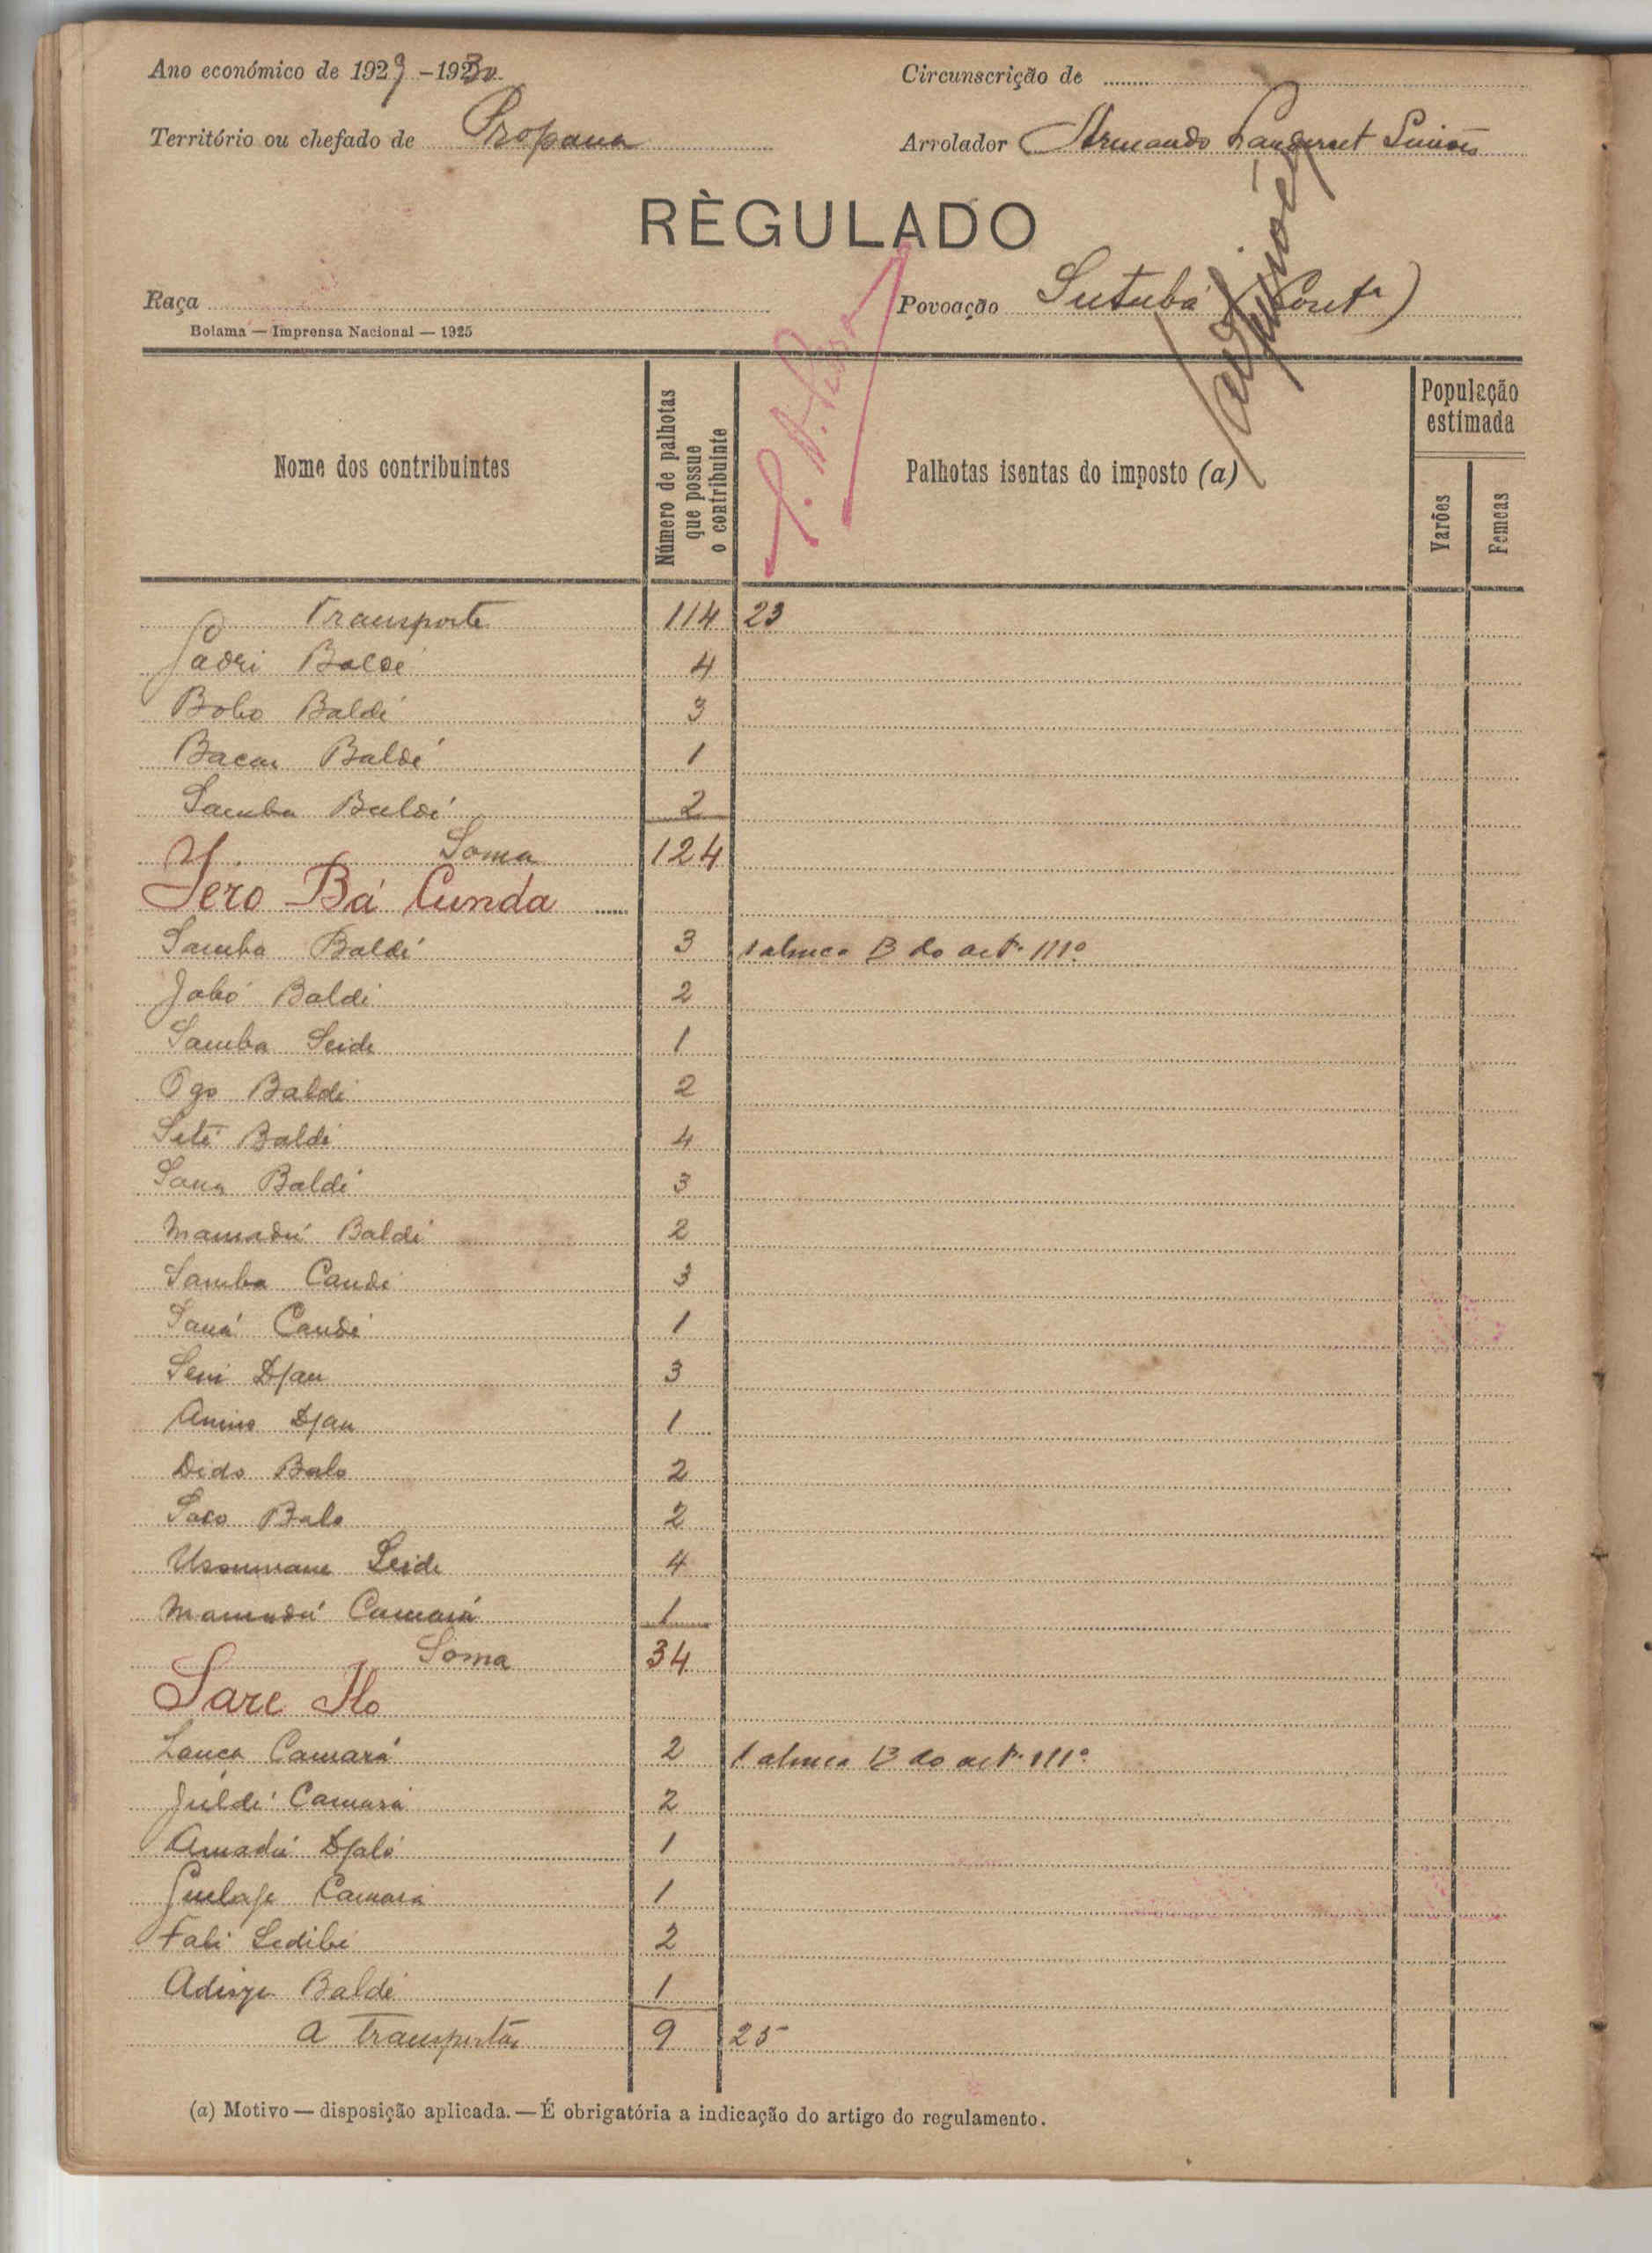 Ano económico de 1929-1930
Circunscrição de
Território ou chefado de Propana
Arrolador Armando Landerset Simões
RÈGULADO
Raça
Povoação Sutubá (Contª)
Bolama — Imprensa Nacional — 1925
Nome dos contribuintes
Número de palhotas que possue o contribuinte
Palhotas isentas do imposto (a)
População estimada
Varões
Femeas
Transporte 114 23
Jadri Baldé 4
Bobo Baldé 3
Bacar Baldé 1
Samba Baldé 2
Soma 124
Jero Bá Cunda
Samba Baldé 3 1 alinea B do artº 111º
Jobó Baldé 2
Samba Seide 1
Ogo Baldé 2
Sité Baldé 4
Sana Baldé 3
Mamadú Baldé 2
Samba Candé 3
Saná Candé 1
Seni Djau 3
Djau 1
Dido Balo 2
Saco Balo 2
Ussumane Seide 4
Mamadú Camará 1
Soma 34
Sare Ilo
Lança Camará 2 1 alinea B do artº 111º
Juldé Camará 2
Amadú Djaló 1
Camará 1
Fali Sedibé 2
Baldé 1
A transportar 9 25
(a) Motivo — disposição aplicada. — É obrigatória a indicação do artigo do regulamento.